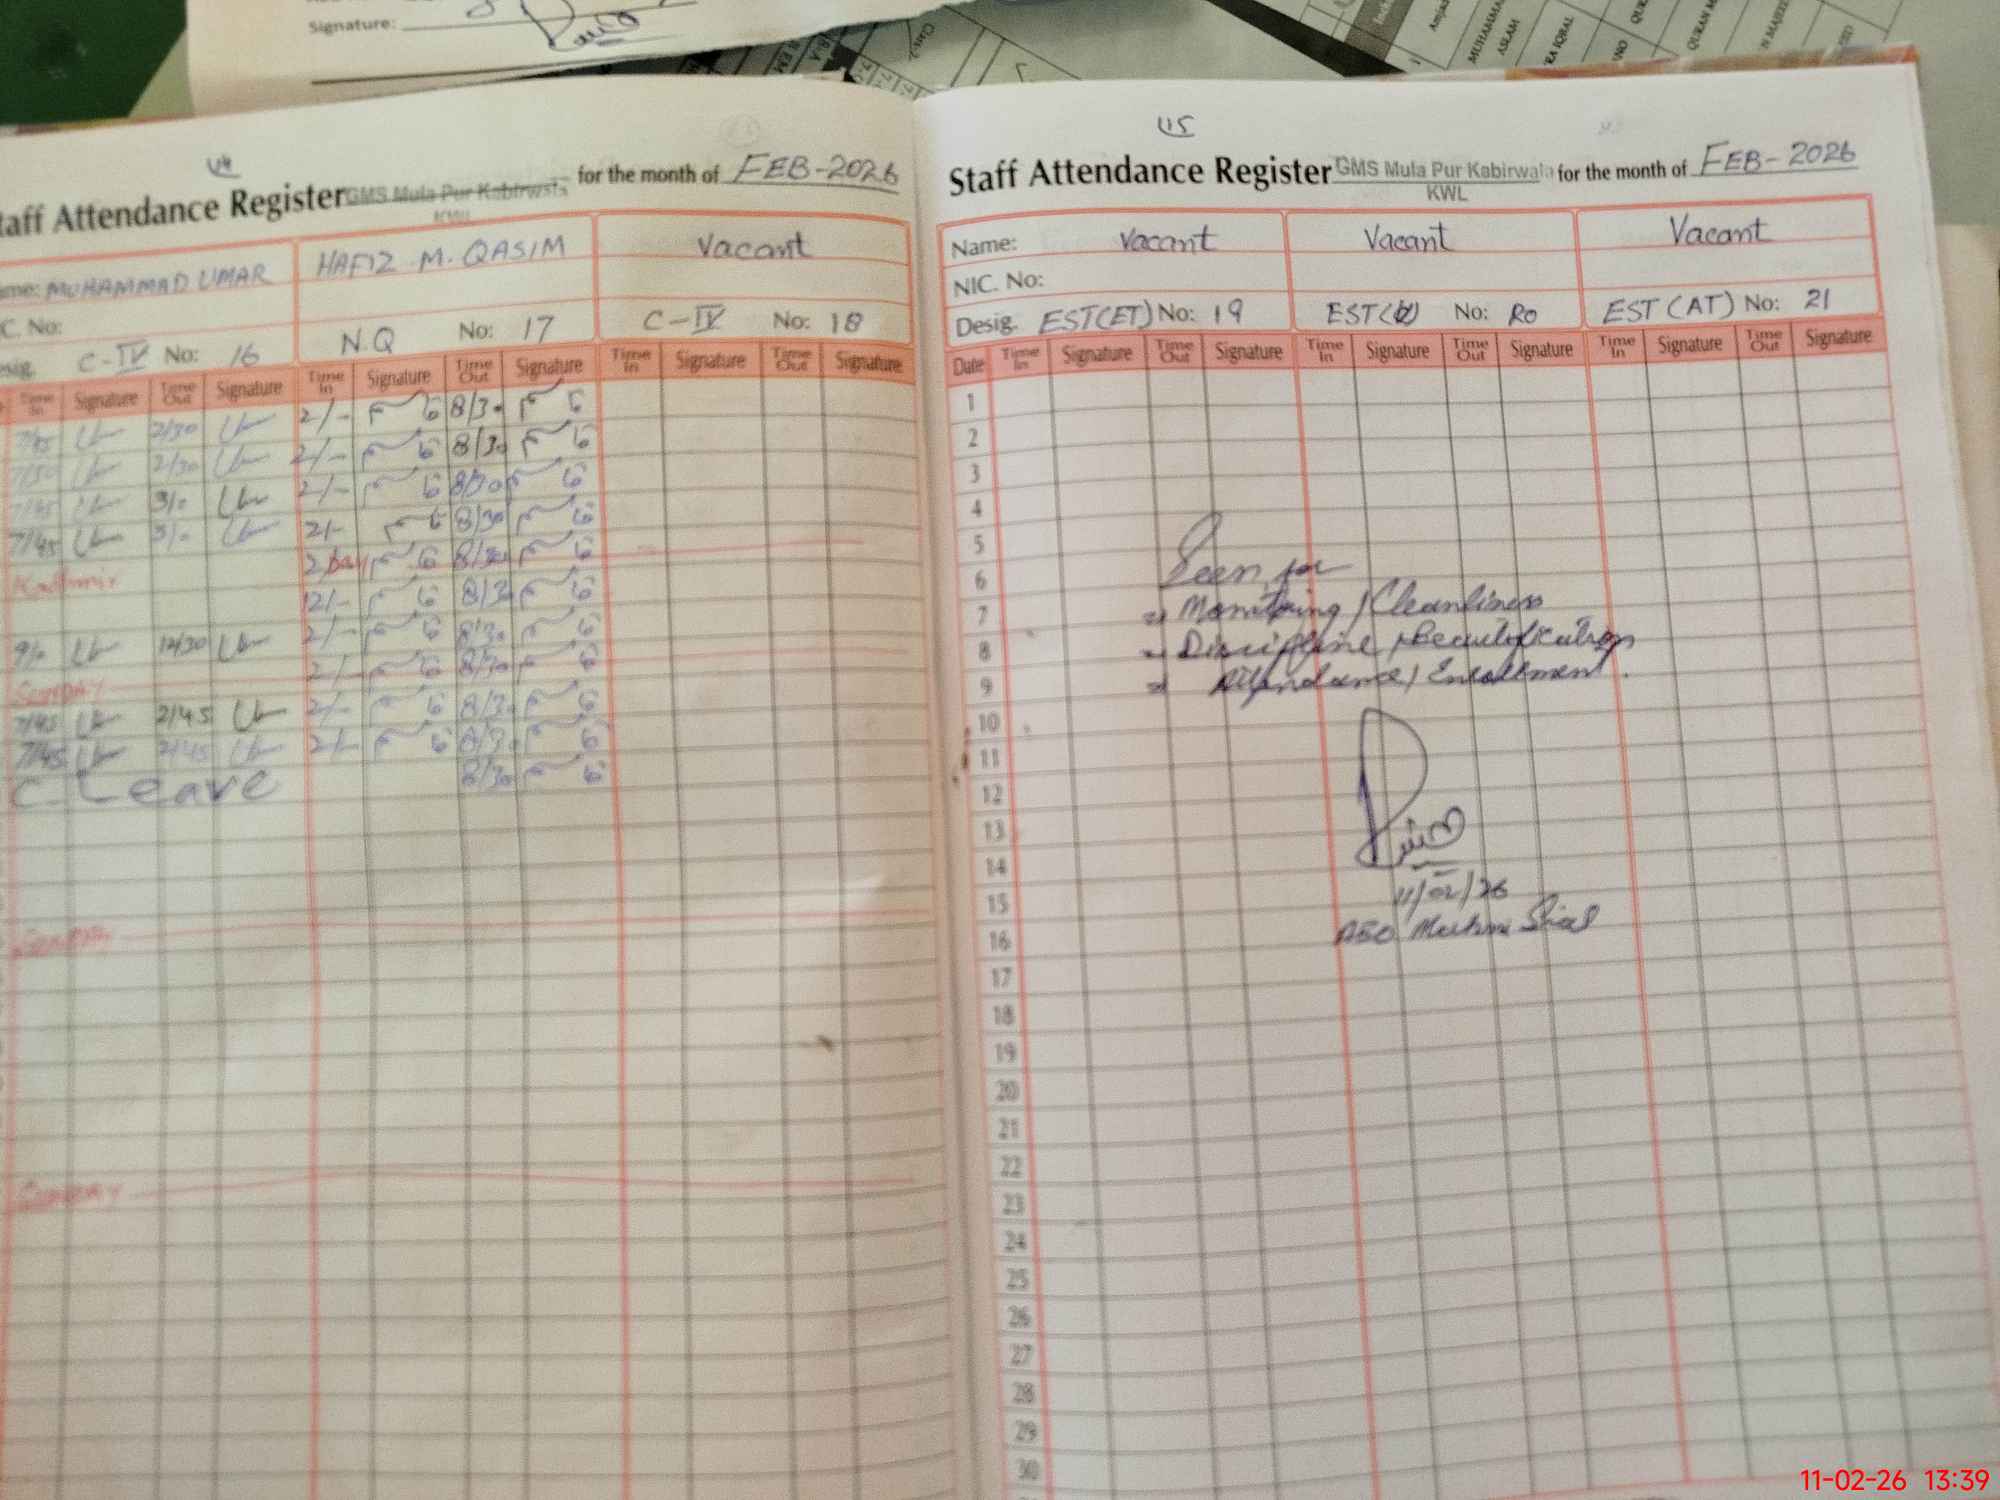 Signature:
Class-7
MUHAMMAD
ASLAM
RA IQBAL
QURAN M
N MAJEED
14
Staff Attendance Register GMS Mula Pur Kabirwala for the month of FEB-2026
KWL
Name: MUHAMMAD UMAR HAFIZ M. QASIM Vacant
C. No:
Desig. C-IV No: 16 N.Q No: 17 C-IV No: 18
Time In Signature Time Out Signature Time In Signature Time Out Signature Time In Signature Time Out Signature
7/45 2/30 2/- 8/30
7/50 2/30 2/- 8/30
7/45 3/0 2/- 8/30
7/45 3/0 2/- 8/30
Kashmir 2 Day 8/30
12/- 8/30
9/0 12/30 2/- 8/30
Sunday 2/- 8/30
7/45 2/45 2/- 8/30
7/45 2/45 2/- 8/30
C. Leave 8/30
Sunday
Sunday
115
Staff Attendance Register GMS Mula Pur Kabirwala for the month of FEB-2026
KWL
Name: Vacant Vacant Vacant
NIC. No:
Desig. EST(ET) No: 19 EST No: 20 EST (AT) No: 21
Date Time In Signature Time Out Signature Time In Signature Time Out Signature Time In Signature Time Out Signature
1
2
3
4
5
6
7
8
9
10
11
12
13
14
15
16
17
18
19
20
21
22
23
24
25
26
27
28
29
30
Seen for
Monitoring / Cleanliness
Discipline / Beautification
Attendance / Enrollment.
11/02/26
AEO
11-02-26 13:39